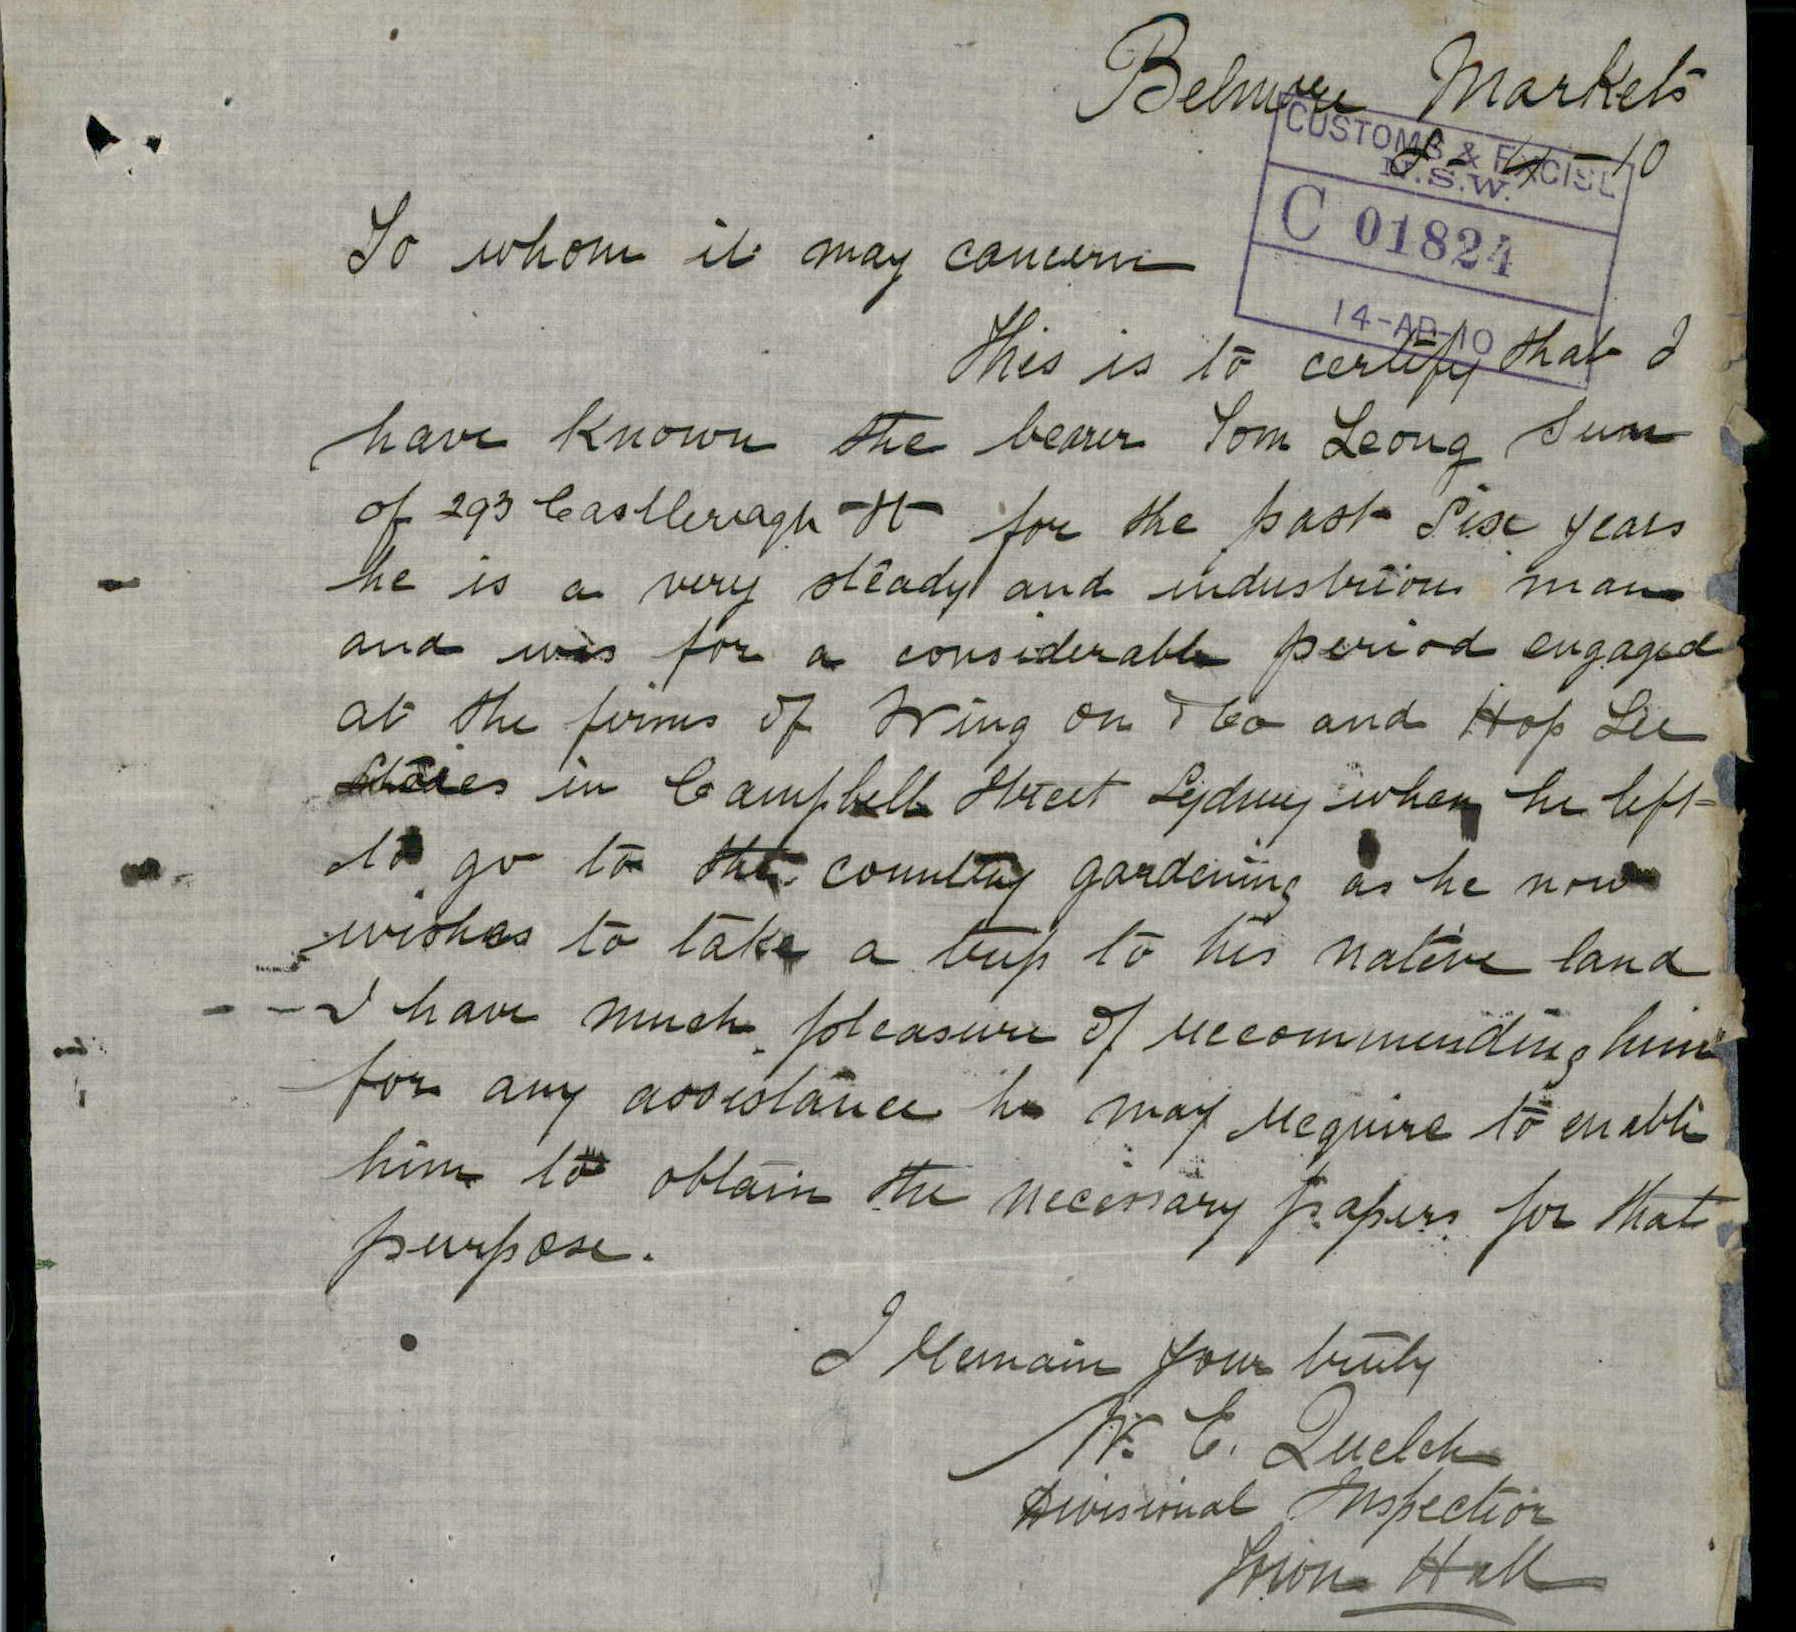 Belmore Markets
4 - 10
CUSTOMS & EXCISE
N.S.W.
C 01824
14-AP-10
To whom it may concern
This is to certify that I
have known the bearer Tom Leong Sun
of 293 Castlereagh St for the past Six years
he is a very steady and industrious man
and was for a considerable period engaged
at the firms of Wing on & Co and Hop Lee
Stores in Campbell Street Sydney when he left
to go to the country gardening as he now
wishes to take a trip to his native land
I have much pleasure of reccommending him
for any assistance he may require to enable
him to obtain the necessary papers for that
purpose.
I remain your truly
W. E. Quelch
Divisional Inspector
Town Hall